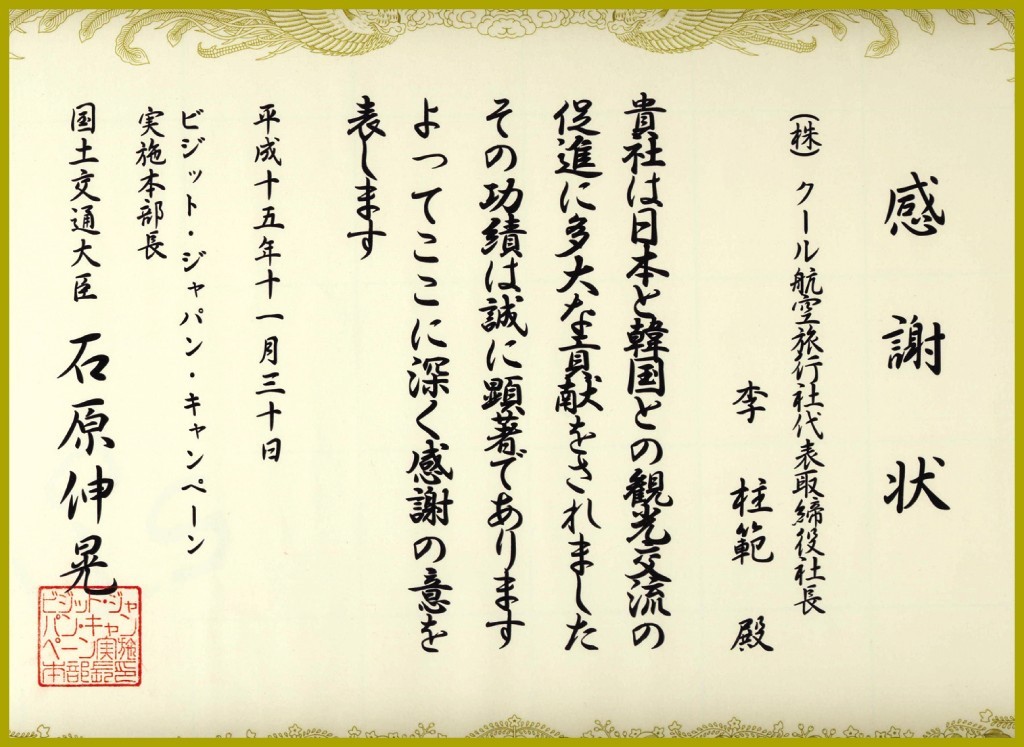 感謝状
(株) クール航空旅行社代表取締役社長
李 柱範 殿
貴社は日本と韓国との観光交流の
促進に多大な貢献をされました
その功績は誠に顕著であります
よってここに深く感謝の意を
表します
平成十五年十一月三十日
ビジット・ジャパン・キャンペーン
実施本部長
国土交通大臣 石原伸晃
ビジット・ジャ
パン・キャン
ペーン実施
本部長印